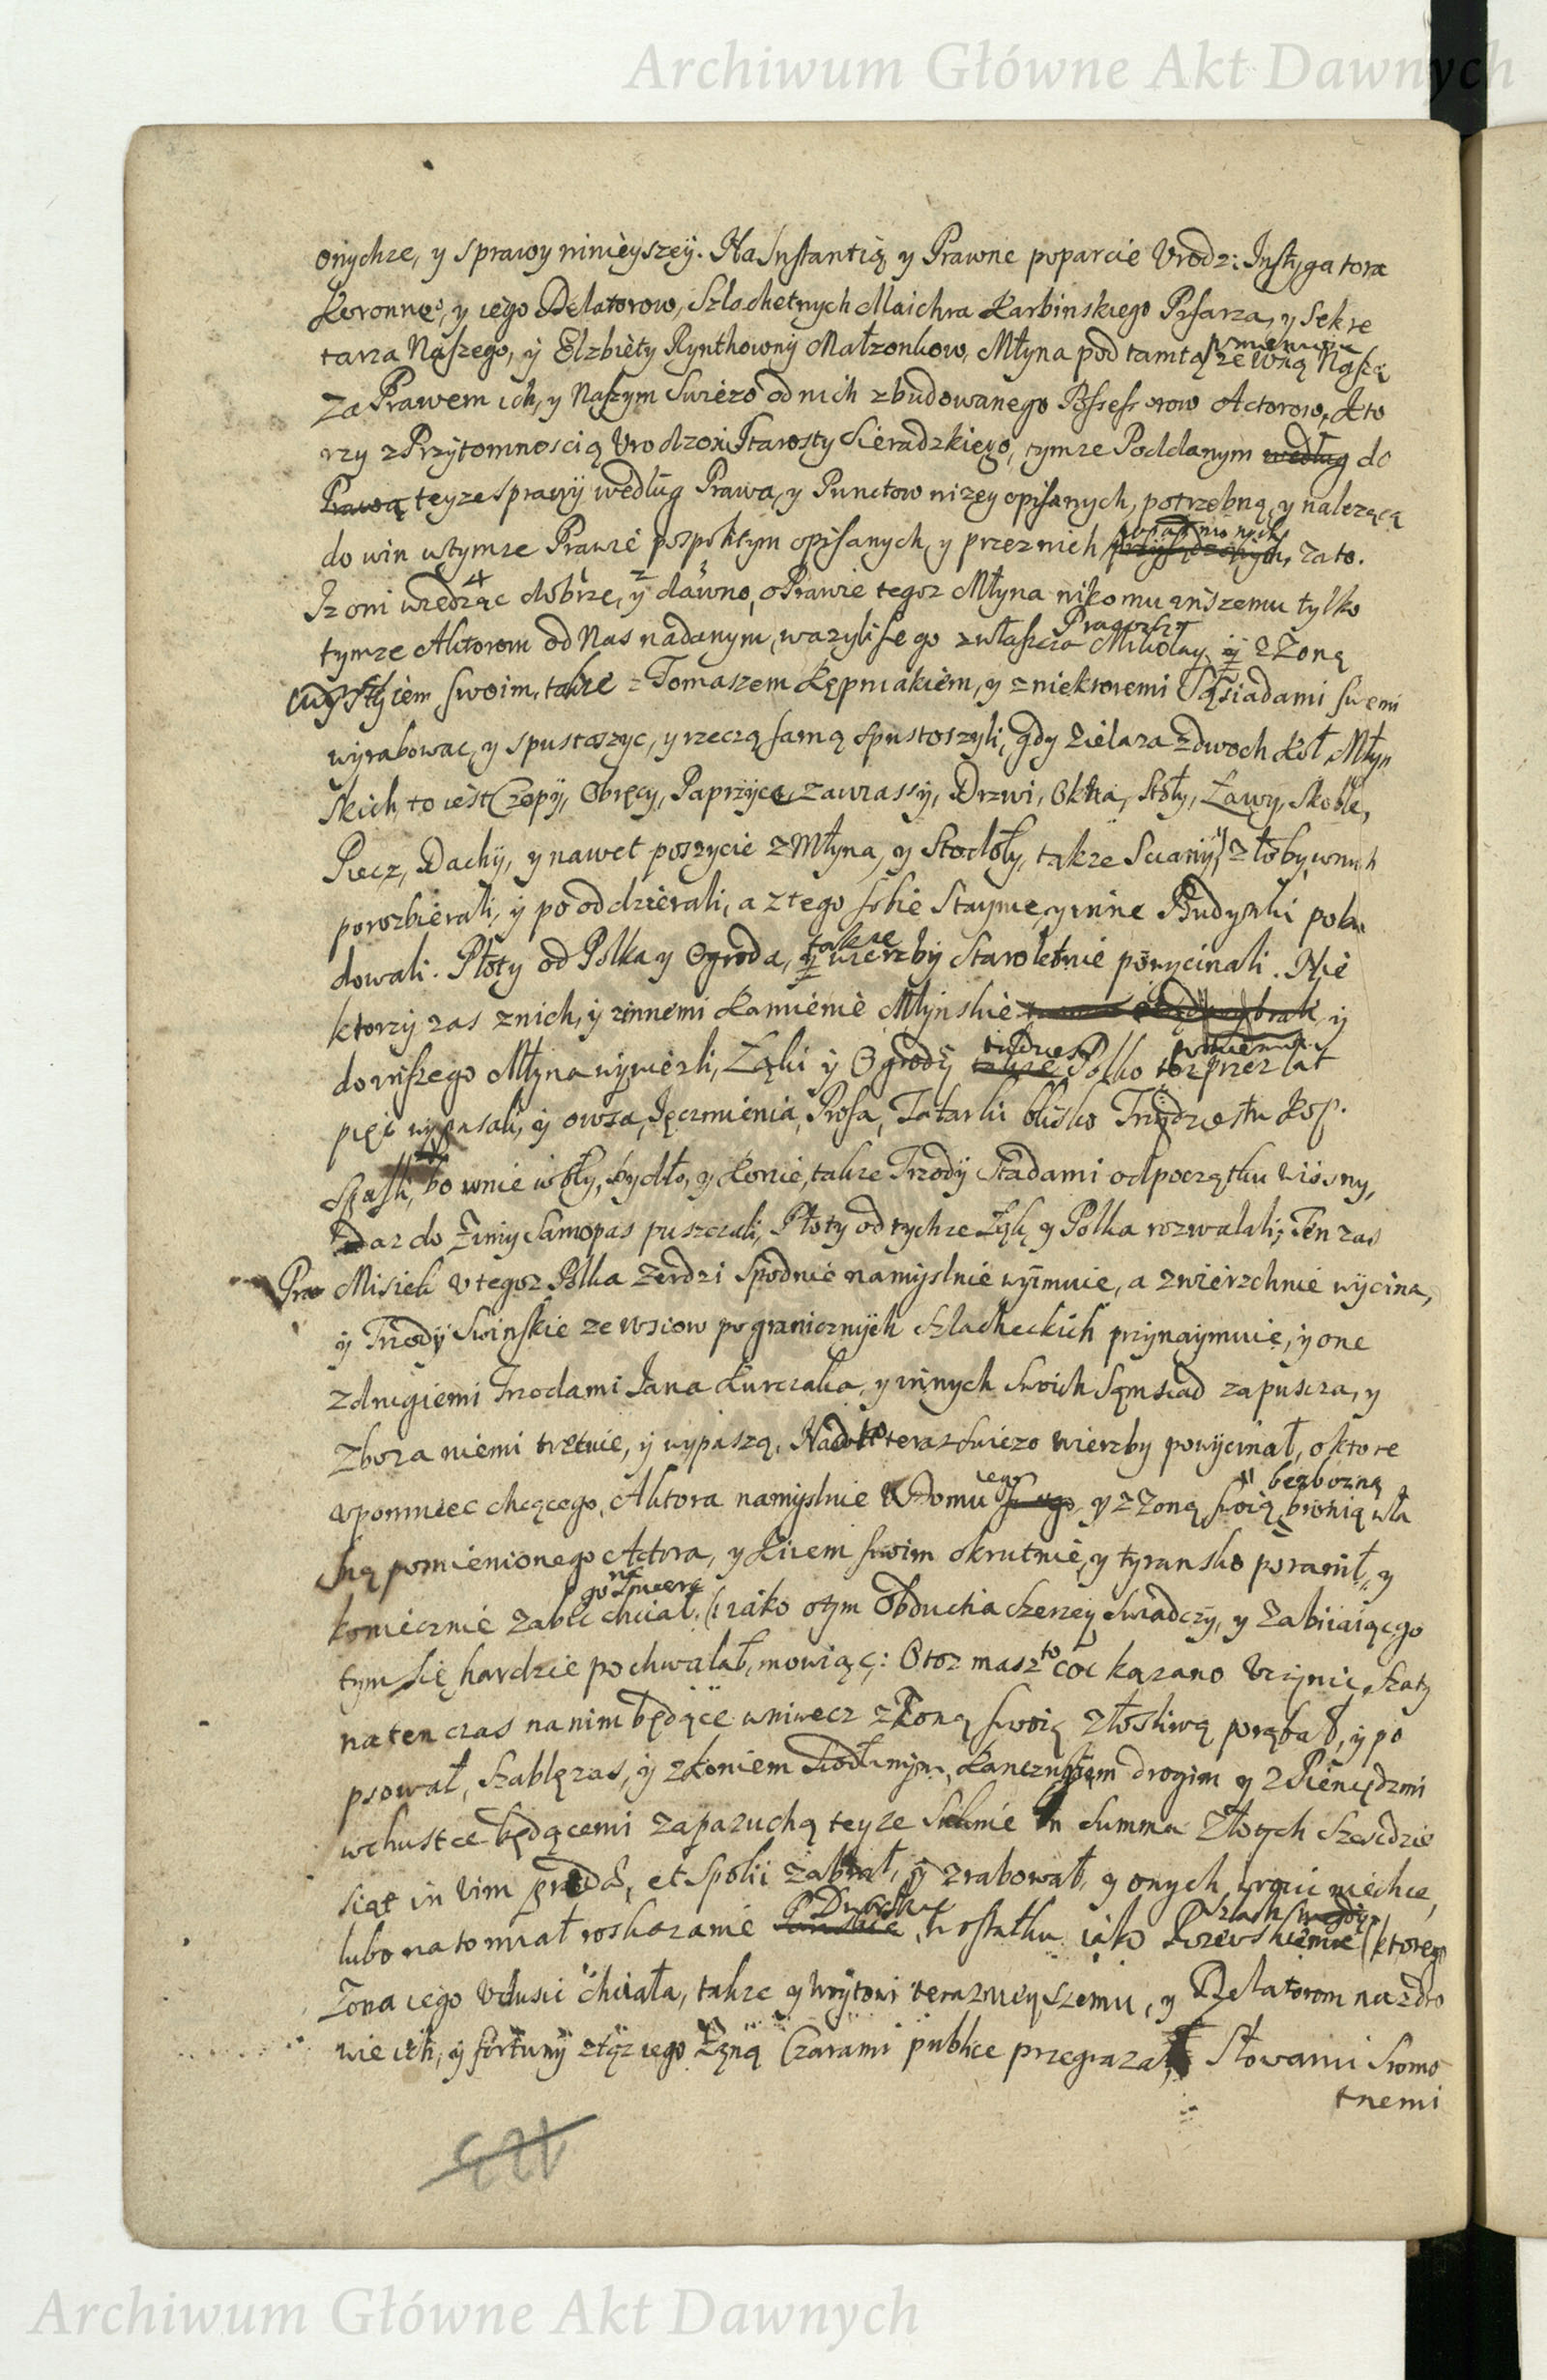 Archiwum Główne Akt Dawnych
onychze, y sprawy ninieyszeÿ. Na Instantią y Prawne poparcie Urodz: Instygatora
Koronneº, y iego Delatorow, Szlachetnych Maichra Karbinskiego Pisarza, y Sekre
tarza Naszego, ÿ Elzbiety Rynthownÿ Małzonkow, Młyna pod tamtą pomienioną ze wsią Naszą
Za Prawem ich, y Naszym Swiezo od nich zbudowanego Possessorow Actorow, Kto
rzy z Przytomnoscią Urodzoº Starosty Sieradzkiego, tymze Poddanym według do
Prawa teyze sprawÿ według Prawa, y Punctow nizey opisanych, potrzebną, y nalezącą
do win wtymze Prawie pospolitym opisanych, y przez nich zato.
Iz oni wiedząc dobrze, y dawno, o Prawie tegoz Młyna nikomu inszemu tylko
tymze Aktorom od Nas nadanym, wazyli się go zwłaszcza Mikołay ÿ z Zoną
swoim, takze z Tomaszem Kępniakiem, y z niektoremi Sąsiadami swemi
wyrabowac, y spustoszyc, y rzeczą samą spustoszyli, gdy Zielaza z dwoch Koł Młyn
skich, to iest Czopÿ, Obręcy, Paprzyce, zawiassÿ, Drzwi, Okna, Stoły, Ławy, Skoble,
Piecz, Dachÿ, y nawet poszycie z Młyna, y Stodoły, takze Scianÿ, y złoby wnich
porozbierali, ÿ poodzierali, a z tego sobie Staynie, y inne Budynki pobu
dowali. Płoty od Polka y Ogroda, takze y wierzby staroletnie powycinali. Nie
ktorzy zas znich, ÿ z innemi Kamienie Młynskie ÿ
do inszego Młyna wywiezli, Łąki ÿ Ogrodÿ takze Polko toz przez lat
pięc wypasali, ÿ owsa, Ięczmienia, Prosa, Tatarki blisko Trzydziestu Kop
Spasli, bo wnie woły, bydło, y Konie, takze Trzodÿ Stadami od początku wiosny,
az do Zimy Samopas puszczali, Płoty od tychze Łąk, y Polka rozwalali; Ten zas
Misiek u tegoz Polka zerdzi spodnie namyslnie wyimuie, a zwierzchnie wycina,
ÿ Trzodÿ Swinskie ze wsiow pogranicznÿch szlacheckich przynaymuie, ÿ one
z drugiemi Trzodami Iana Kurczaka, y innych swoich Sąmsiad zapuscza, y
zboza niemi tretuie, ÿ wypasza. Nadto teraz swiezo wierzby powycinał, o ktore
upomniec chcącego Aktora namyslnie W Domu iego y z Zoną swoią bezbozną bronią wła
sną pomienionego Actora, y Kiiem swoim okrutnie, y tyransko poranił, y
koniecznie zabic go na smierc chciał, iako o tym Obductia szerzey swiadczy, y zabiiaiącego
tym się hardzie pochwalał, mowiąc: Otoz masz to coc kazano Uczynic, szaty
naten czas na nim będące wniwecz z Zoną swoią złosliwą porąbał, ÿ po
psował, Szablę zas, ÿ z koniem Siodłanym, Kanczugiem drogim y z Pieniędzmi
wchustce będącemi zapazuchą teyze Suknie in Summa Złotych Szescdzie
siąt in vim prædæ, et Spolii zabrał, ÿ zrabował, y onych wrocic niechce,
lubo na to miał roskazanie Dworskie, w ostatku iako (ktorego
Zona iego udusic chciała, takze y terazniejszemu, y Delatorom na zdro
wie ich, ÿ fortuny ztąz iego Zoną Czarami publice przegrazał, Słowami sromo
tnemi
Archiwum Główne Akt Dawnych